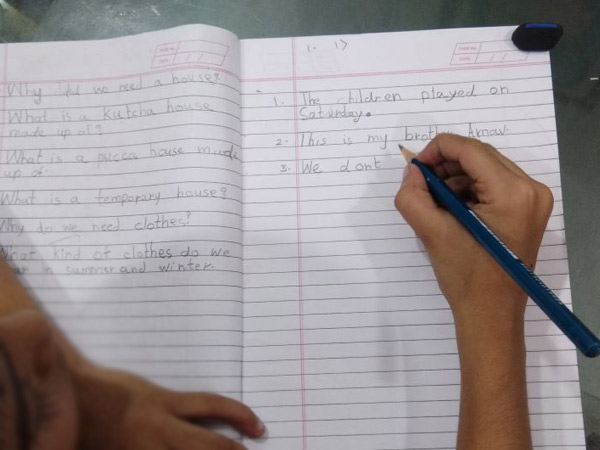 Why did we need a house?
What is a kutcha house
made up of?
What is a pucca house made
up of.
What is a temporary house?
Why do we need clothes?
What kind of clothes do we
in summer and winter.
1. 1>
1. The children played on
Saturday.
2. This is my brother Arnav.
3. We dont